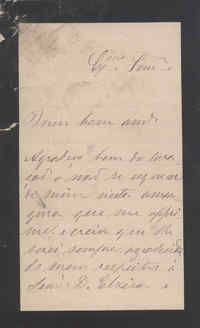 Exmo. Snr.
Meu bom amo.
Agradeço bem do cora
ção o não se esquecer
de mim nesta amar
gura que me oppri
me, e creia que lhe
serei sempre agradecido
meus respeitos á
Snra. D. Elvira e